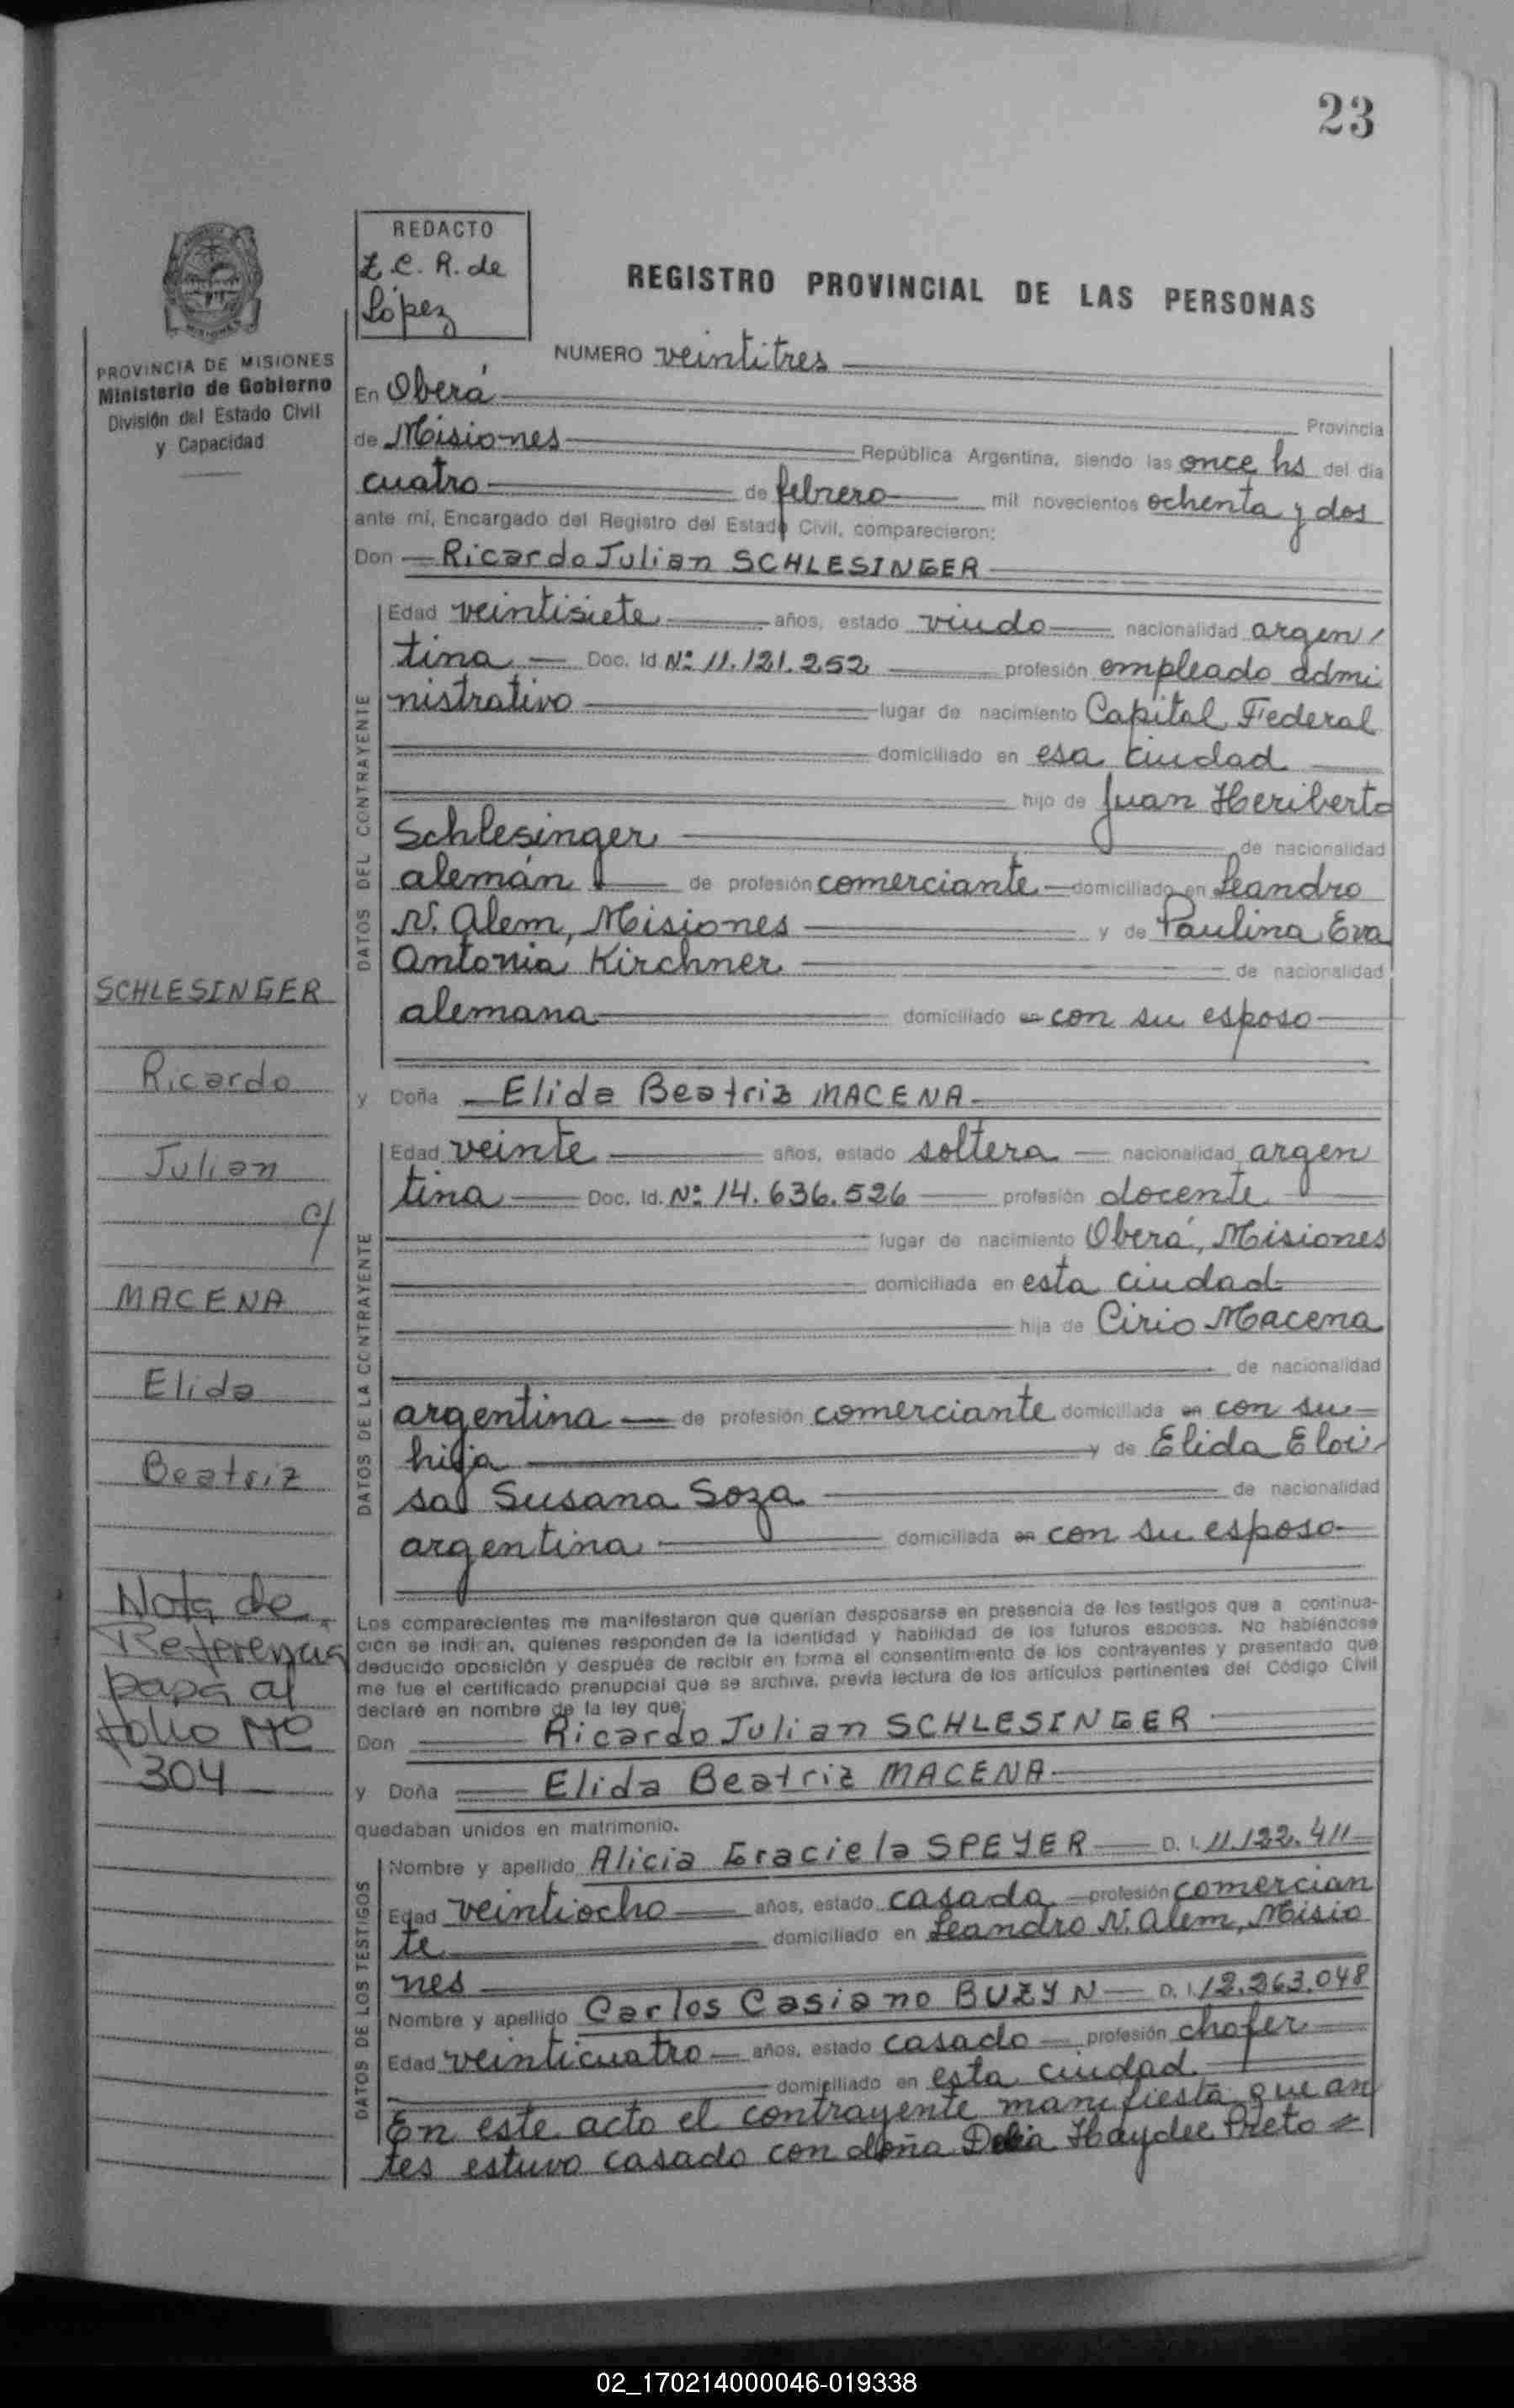 23
REDACTO
Z.C.R. de
López
REGISTRO PROVINCIAL DE LAS PERSONAS
PROVINCIA DE MISIONES
Ministerio de Gobierno
División del Estado Civil
y Capacidad
NUMERO veintitres
En Oberá
Provincia
de Misiones República Argentina, siendo las once hs del día
cuatro de febrero mil novecientos ochenta y dos
ante mí, Encargado del Registro del Estado Civil, comparecieron:
Don Ricardo Julian SCHLESINGER
DATOS DEL CONTRAYENTE
Edad veintisiete años, estado viudo nacionalidad argen/
tina Doc. Id Nº 11.121.252 profesión empleado admi
nistrativo lugar de nacimiento Capital Federal
domiciliado en esa ciudad
hijo de Juan Heriberto
Schlesinger de nacionalidad
alemán de profesión comerciante domiciliado en Leandro
N. Alem, Misiones y de Paulina Eva
Antonia Kirchner de nacionalidad
alemana domiciliado en con su esposo
y Doña Elida Beatriz MACENA
DATOS DE LA CONTRAYENTE
Edad veinte años, estado soltera nacionalidad argen
tina Doc. Id. Nº 14.636.526 profesión docente
lugar de nacimiento Oberá, Misiones
domiciliada en esta ciudad
hija de Cirio Macena
de nacionalidad
argentina de profesión comerciante domiciliada en con su
hija y de Elida Eloi
sa Susana Soza de nacionalidad
argentina domiciliada en con su esposo
SCHLESINGER
Ricardo
Julian
c/
MACENA
Elida
Beatriz
Nota de
Referencia
pasa al
folio Nº
304
Los comparecientes me manifestaron que querían desposarse en presencia de los testigos que a continua-
ción se indican, quienes responden de la identidad y habilidad de los futuros esposos. No habiéndose
deducido oposición y después de recibir en forma el consentimiento de los contrayentes y presentado que
me fue el certificado prenupcial que se archiva, previa lectura de los artículos pertinentes del Código Civil
declaré en nombre de la ley que:
Don Ricardo Julian SCHLESINGER
y Doña Elida Beatriz MACENA
quedaban unidos en matrimonio.
DATOS DE LOS TESTIGOS
Nombre y apellido Alicia Graciela SPEYER D. I. 11.122.411
Edad veintiocho años, estado casada profesión comercian
te domiciliado en Leandro N. Alem, Misio
nes
Nombre y apellido Carlos Casiano BUZYN D. I. 12.263.048
Edad veinticuatro años, estado casado profesión chofer
domiciliado en esta ciudad
En este acto el contrayente manifiesta que an
tes estuvo casado con doña Delia Haydee Preto =
02_170214000046-019338